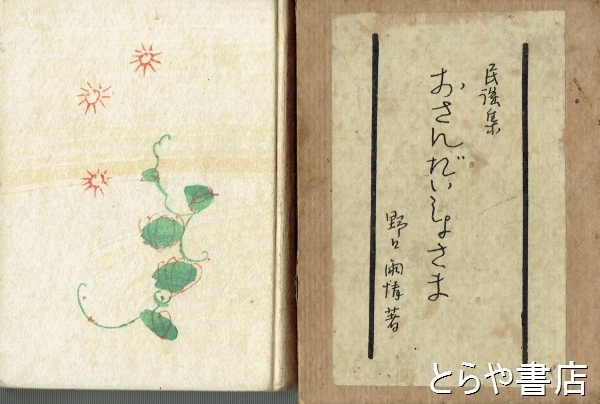 民謡集
おさんだいしょさま
野口雨情著
とらや書店